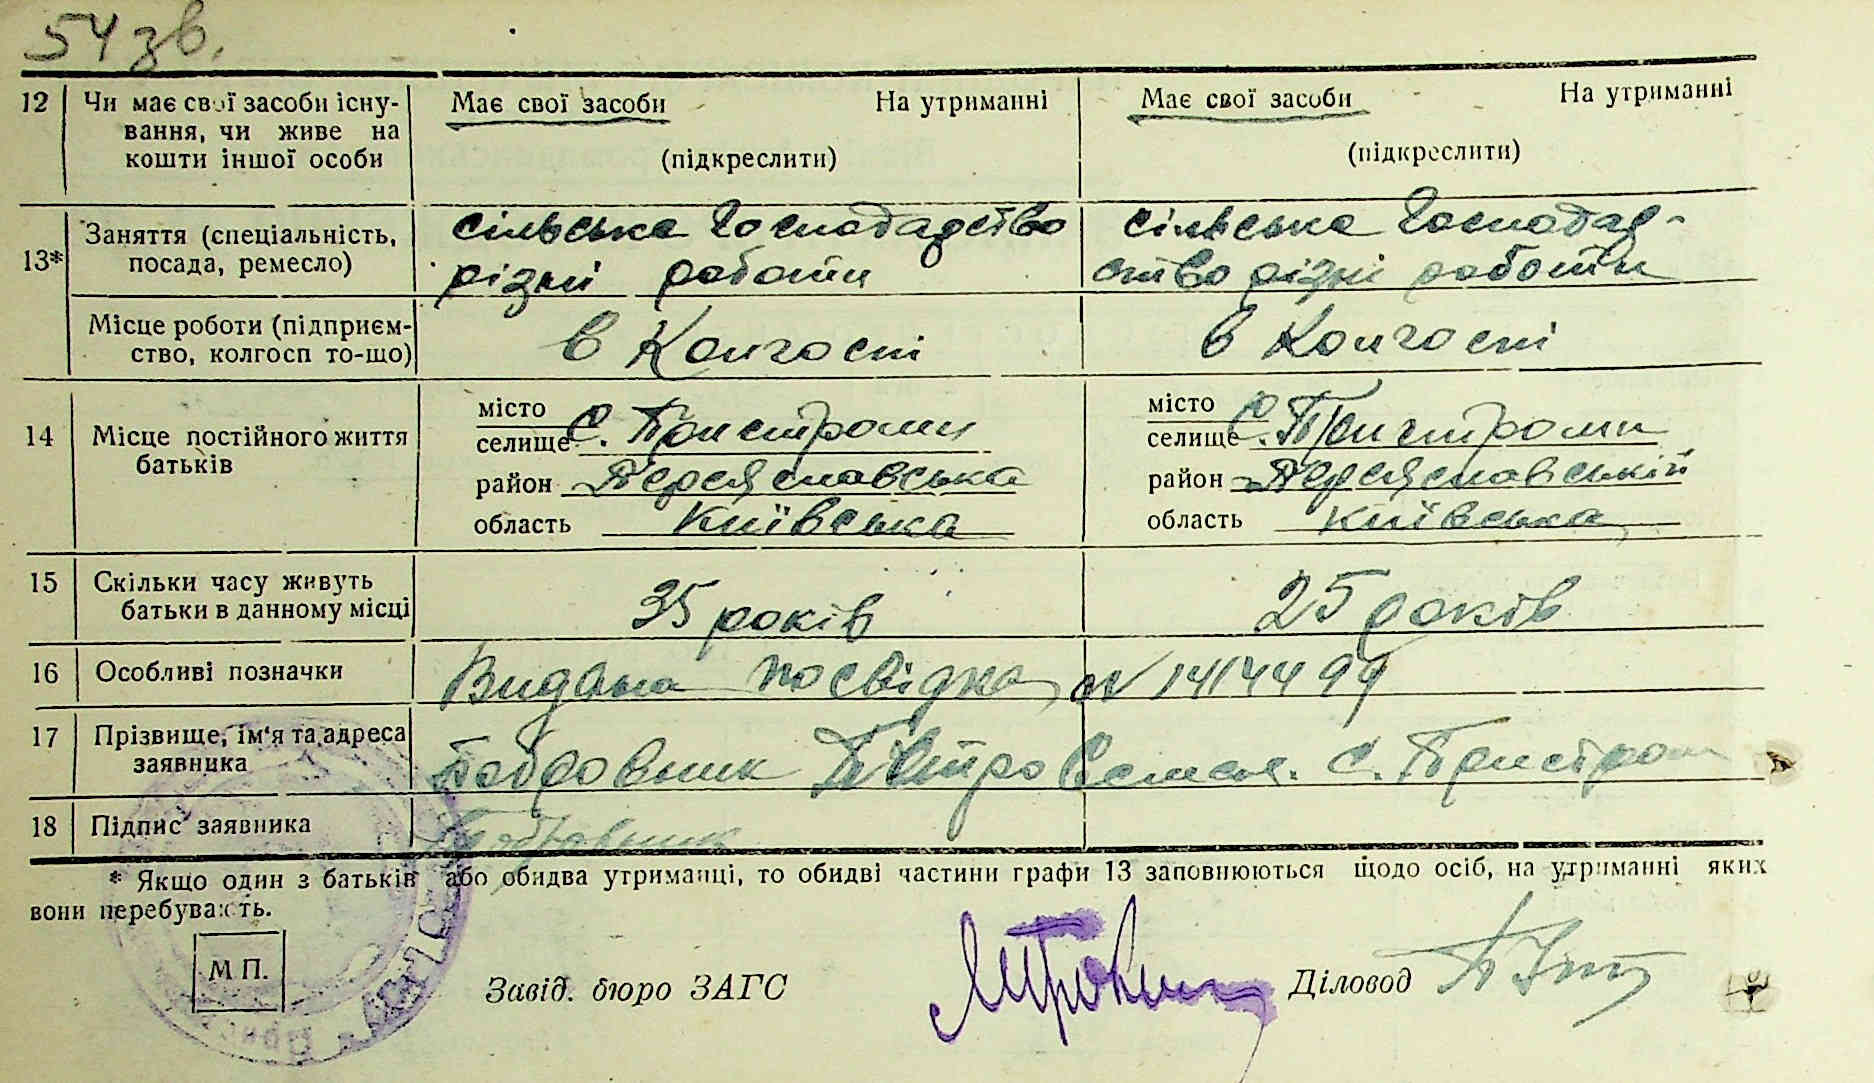 54 зв.
12 Чи має свої засоби існу- Має свої засоби На утриманні Має свої засоби На утриманні
вання, чи живе на
кошти іншої особи (підкреслити) (підкреслити)
13* Заняття (спеціальність, сільське господарство сільське господар-
посада, ремесло) різні роботи ство різні роботи
Місце роботи (підприєм- в колгоспі в колгоспі
ство, колгосп то-що)
14 Місце постійного життя місто місто
батьків селище с. Пристроми селище с. Пристроми
район Переяславська район Переяславській
область Київська область Київська
15 Скільки часу живуть 35 років 25 років
батьки в данному місці
16 Особливі позначки Видана посвідка №
17 Прізвище, ім'я та адреса Бобровник Петро с. Пристром
заявника
18 Підпис заявника Бобровник
* Якщо один з батьків або обидва утриманці, то обидві частини графи 13 заповнюються щодо осіб, на утриманні яких
вони перебувають.
М П. Завід. бюро ЗАГС Діловод